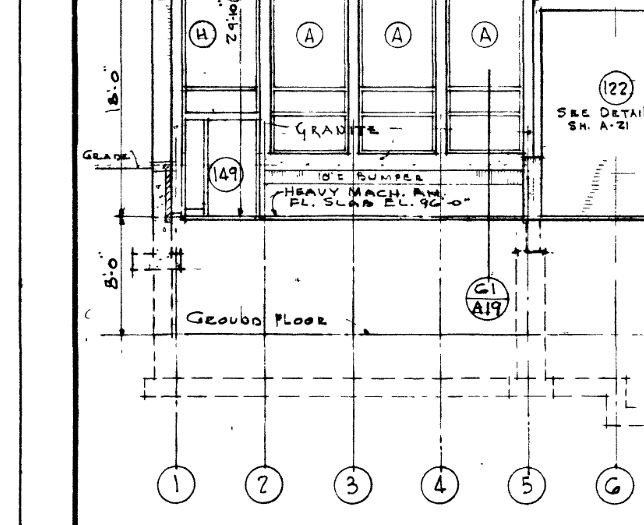 H
29'-10
A
A
A
18'-0"
122
SEE DETAI
SH. A-21
GRANITE
GRADE
149
10" C BUMPER
HEAVY MACH. RM.
FL. SLAB EL. 96'-0"
8'-0"
G1
A19
GROUND FLOOR
1
2
3
4
5
6